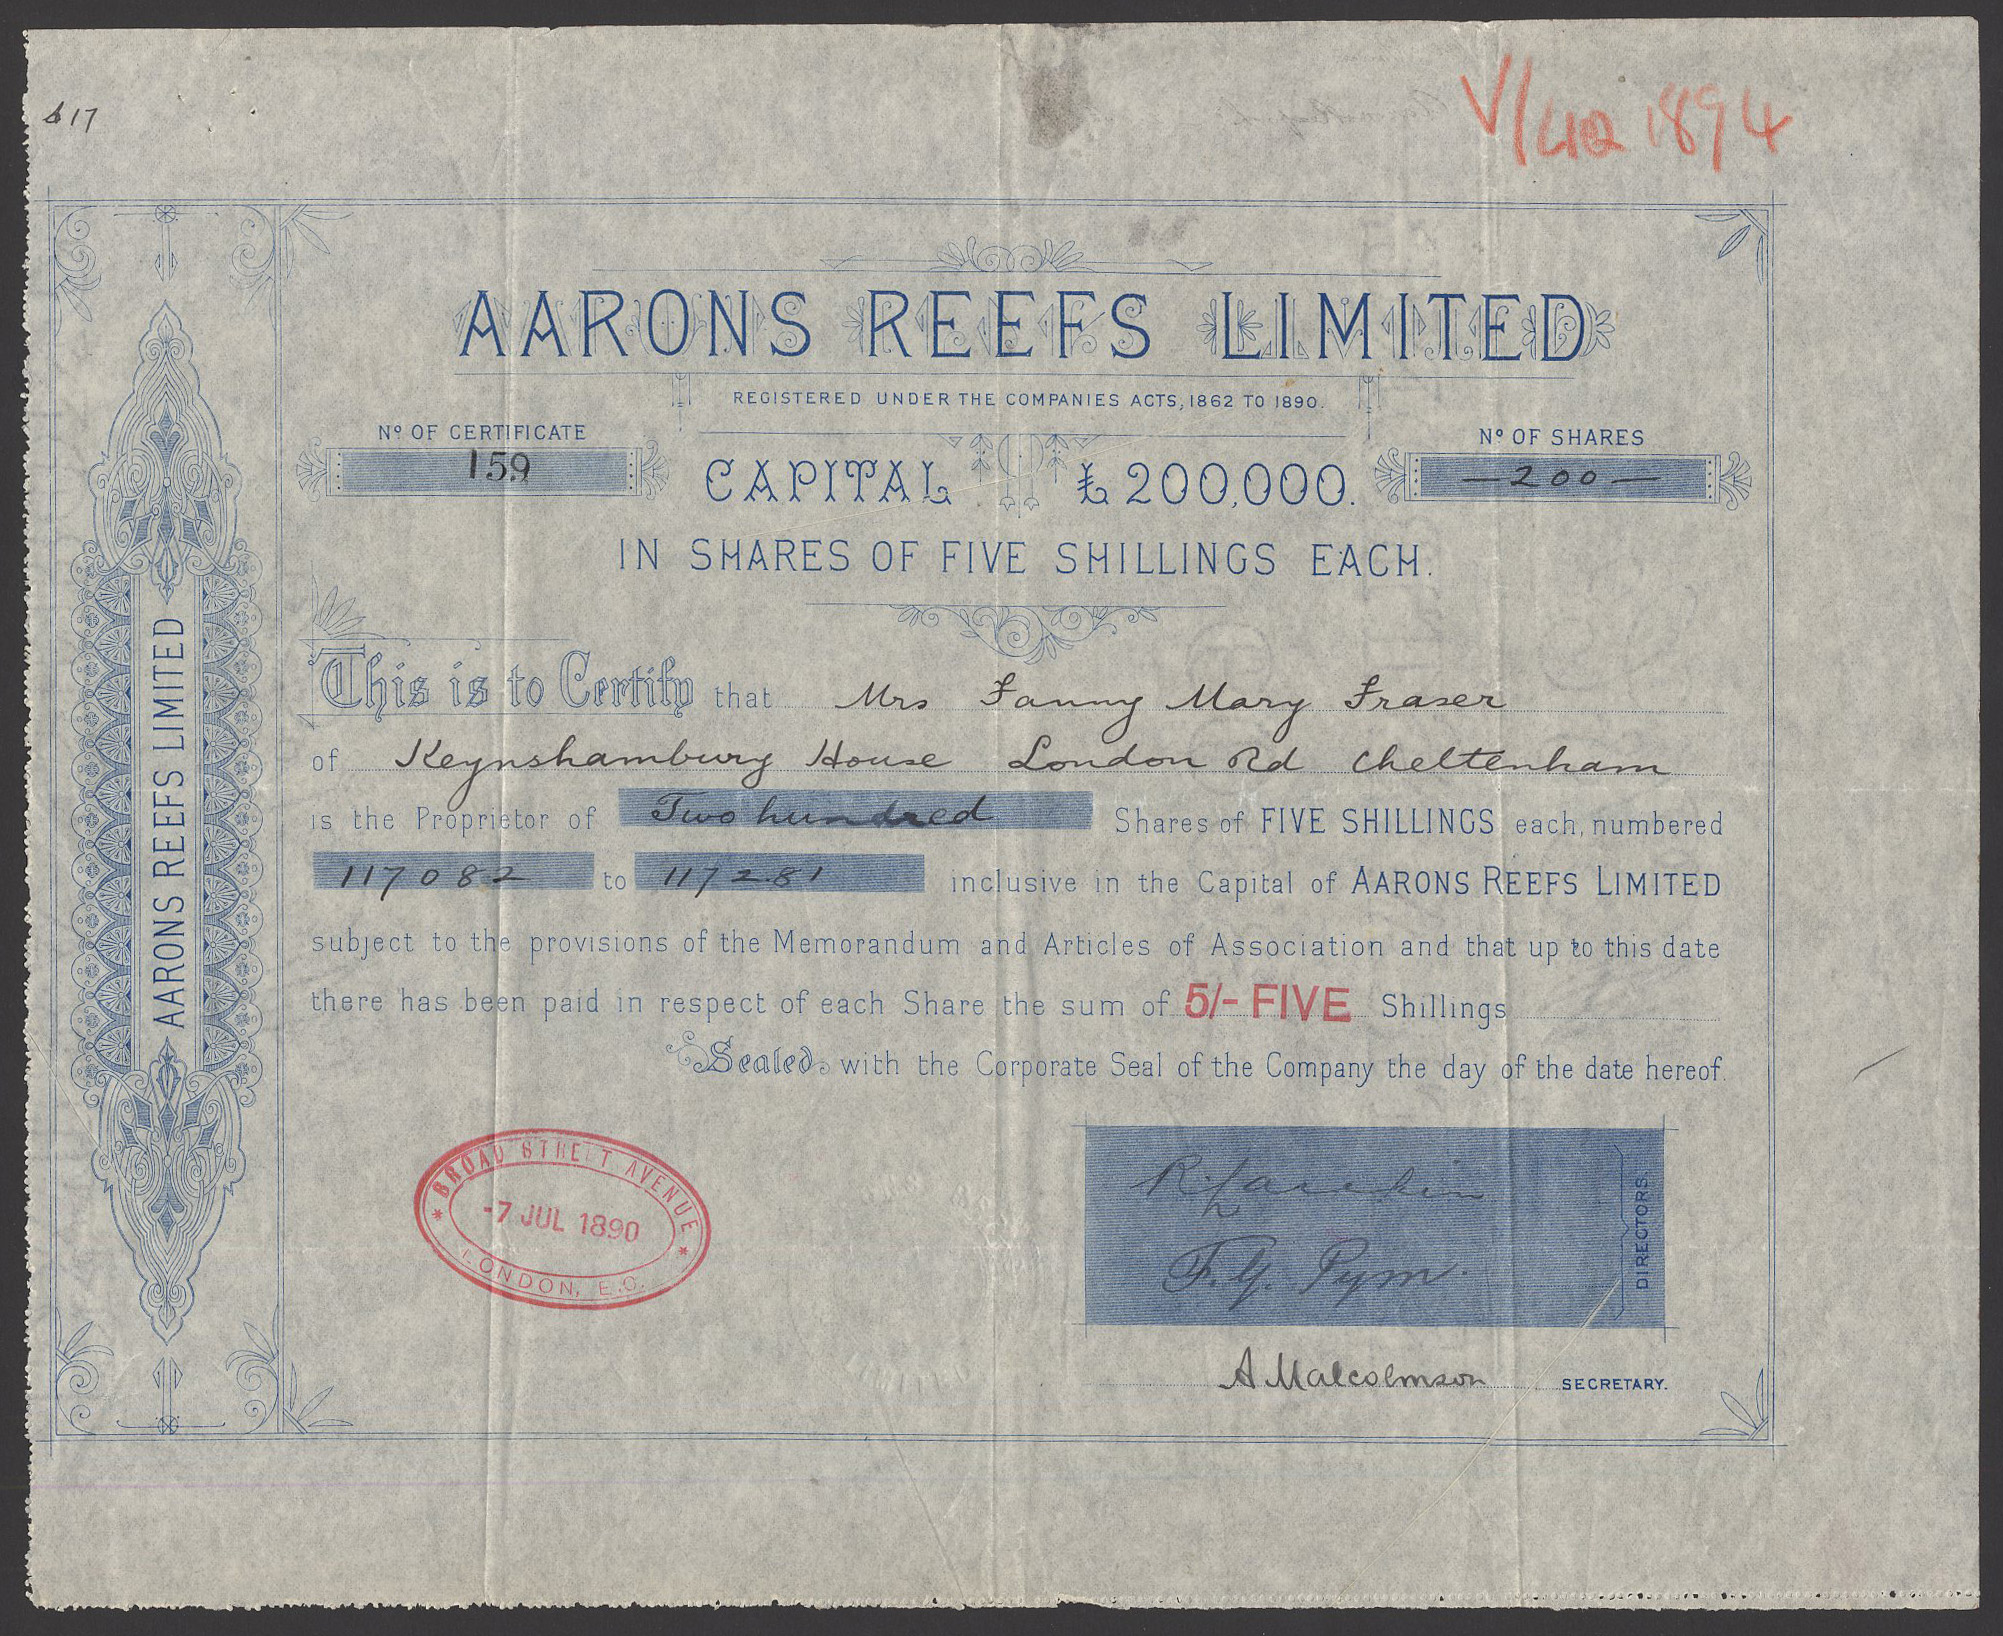 617
V/LIQ 1894
AARONS REEFS LIMITED
REGISTERED UNDER THE COMPANIES ACTS, 1862 TO 1890.
Nº OF CERTIFICATE
159
CAPITAL £200,000.
Nº OF SHARES
— 200 —
IN SHARES OF FIVE SHILLINGS EACH.
This is to Certify that Mrs Fanny Mary Fraser
of Keynshambury House London Rd Cheltenham
is the Proprietor of Two hundred Shares of FIVE SHILLINGS each, numbered
117082 to 117281 inclusive in the Capital of AARONS REEFS LIMITED
subject to the provisions of the Memorandum and Articles of Association and that up to this date
there has been paid in respect of each Share the sum of 5/- FIVE Shillings
Sealed with the Corporate Seal of the Company the day of the date hereof.
AARONS REEFS LIMITED
BROAD STREET AVENUE
-7 JUL 1890
LONDON, E.C.
F. G Pym.
DIRECTORS.
A Malcolmson SECRETARY.